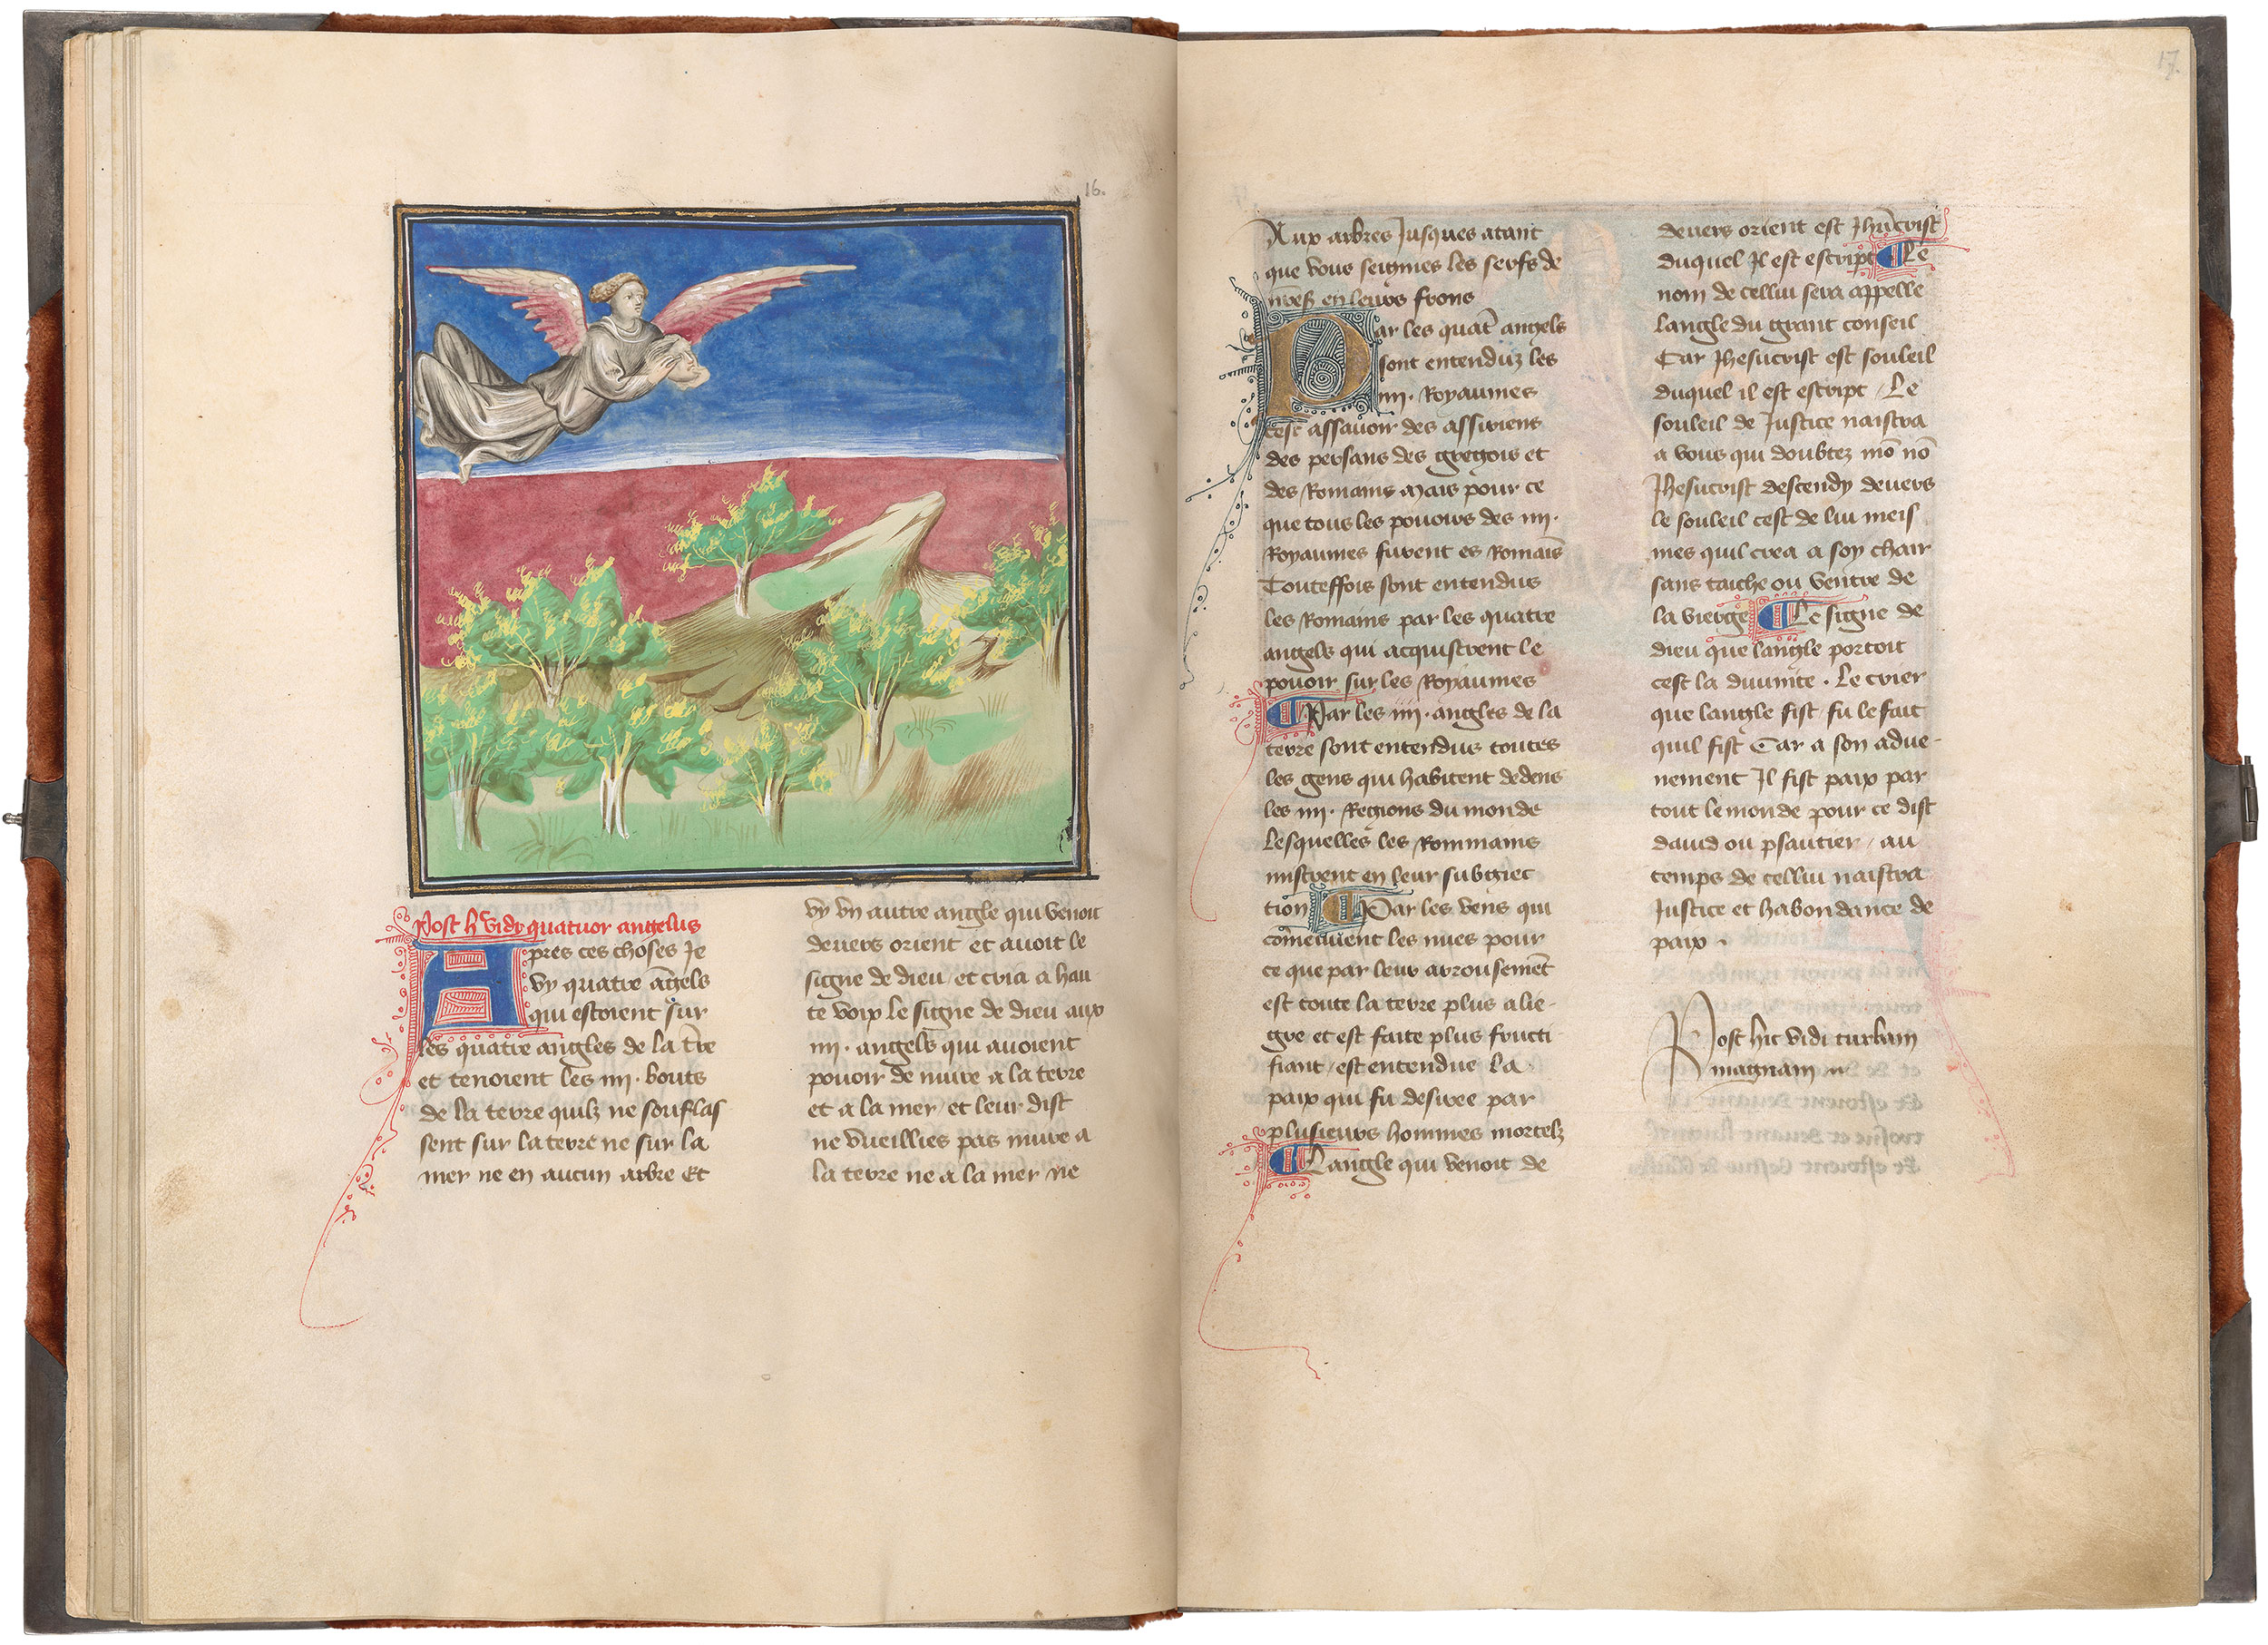 16.
Post h vidi quatuor angelus
Apres ces choses Je
vy quatre āgels
qui estoient sur
les quatre angles de la tr̄e
et tenoient les iiii. bouts
de la terre quilz ne souflas
sent sur la terre ne sur la
mer ne en aucun arbre Et
vy vn autre angle qui venoit
deuers orient et auoit le
signe de dieu / et cria a hau
te voix le signe de dieu aux
iiii. angels qui auoient
pouoir de nuire a la terre
et a la mer / et leur dist
ne vueillies pas nuire a
la terre ne a la mer / ne
17.
Aux arbres Jusques atant
que vous seignies les serfs de
en leurs frons
Par les quat̄ angels
sont entenduz les
iiii. Royaumes
cest assauoir des assiriens
des persans des gregois et
des Romains Mais pour ce
que tous les pouoirs des iiii.
Royaumes furent es Romais̄
Touteffois sont entendus
les Romains par les quatre
angels qui acquistrent le
pouoir sur les Royaumes
Par les iiii. angles de la
terre sont entendus toutes
les gens qui habitent dedens
les iiii. Regions du monde
Lesquelles les Rommains
mistrent en leur subgiec
tion Par les vens qui
com̄euuent les nues pour
ce que par leur arrousemēt
est toute la terre plus alie-
gre et est faite plus fructi
fiant / est entendue la
paix qui fu desiree par
plusieurs hommes mortelz
Langle qui venoit de
deuers orient est Jhūcrist
duquel Jl est escript Le
nom de cellui sera appelle
Langle du grant conseil
Car Jhesucrist est souleil
duquel il est escript / Le
souleil de Justice naistra
a vous qui doubtez mō nō
Jhesucrist descendy deuers
le souleil cest de lui meis
mes quil crea a soy chair
sans taiche ou ventre de
la vierge Le signe de
dieu que langle portoit
cest la diuinite . Le crier
que langle fist / fu le fait
quil fist Car a son adue-
nement Jl fist paix par
tout le monde pour ce dist
dauid ou psaultier / au
temps de cellui naistra
Justice et habondance de
paix .
Post hic vidi turbam
magnam